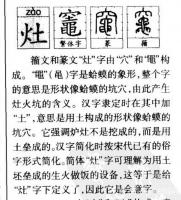 zào
灶 竈 竈 竈
繁体字 篆 籀
籀文和篆文“灶”字由“穴”和“黽”构
成。“黽”(黾)字是蛤蟆的象形，整个字
的意思是形状像蛤蟆的坑穴，由此产生
灶火坑的含义。汉字隶定时在其中加
“土”，意思是用土构成的形状像蛤蟆的
坑穴。它强调炉灶不是挖成的，而是用
土垒成的。汉字简化时按宋代已有的俗
字形式简化。简体“灶”字可理解为用土
坯垒成的生火做饭的设备，这等于是给
“灶”字下定义了，因此它是会意字。